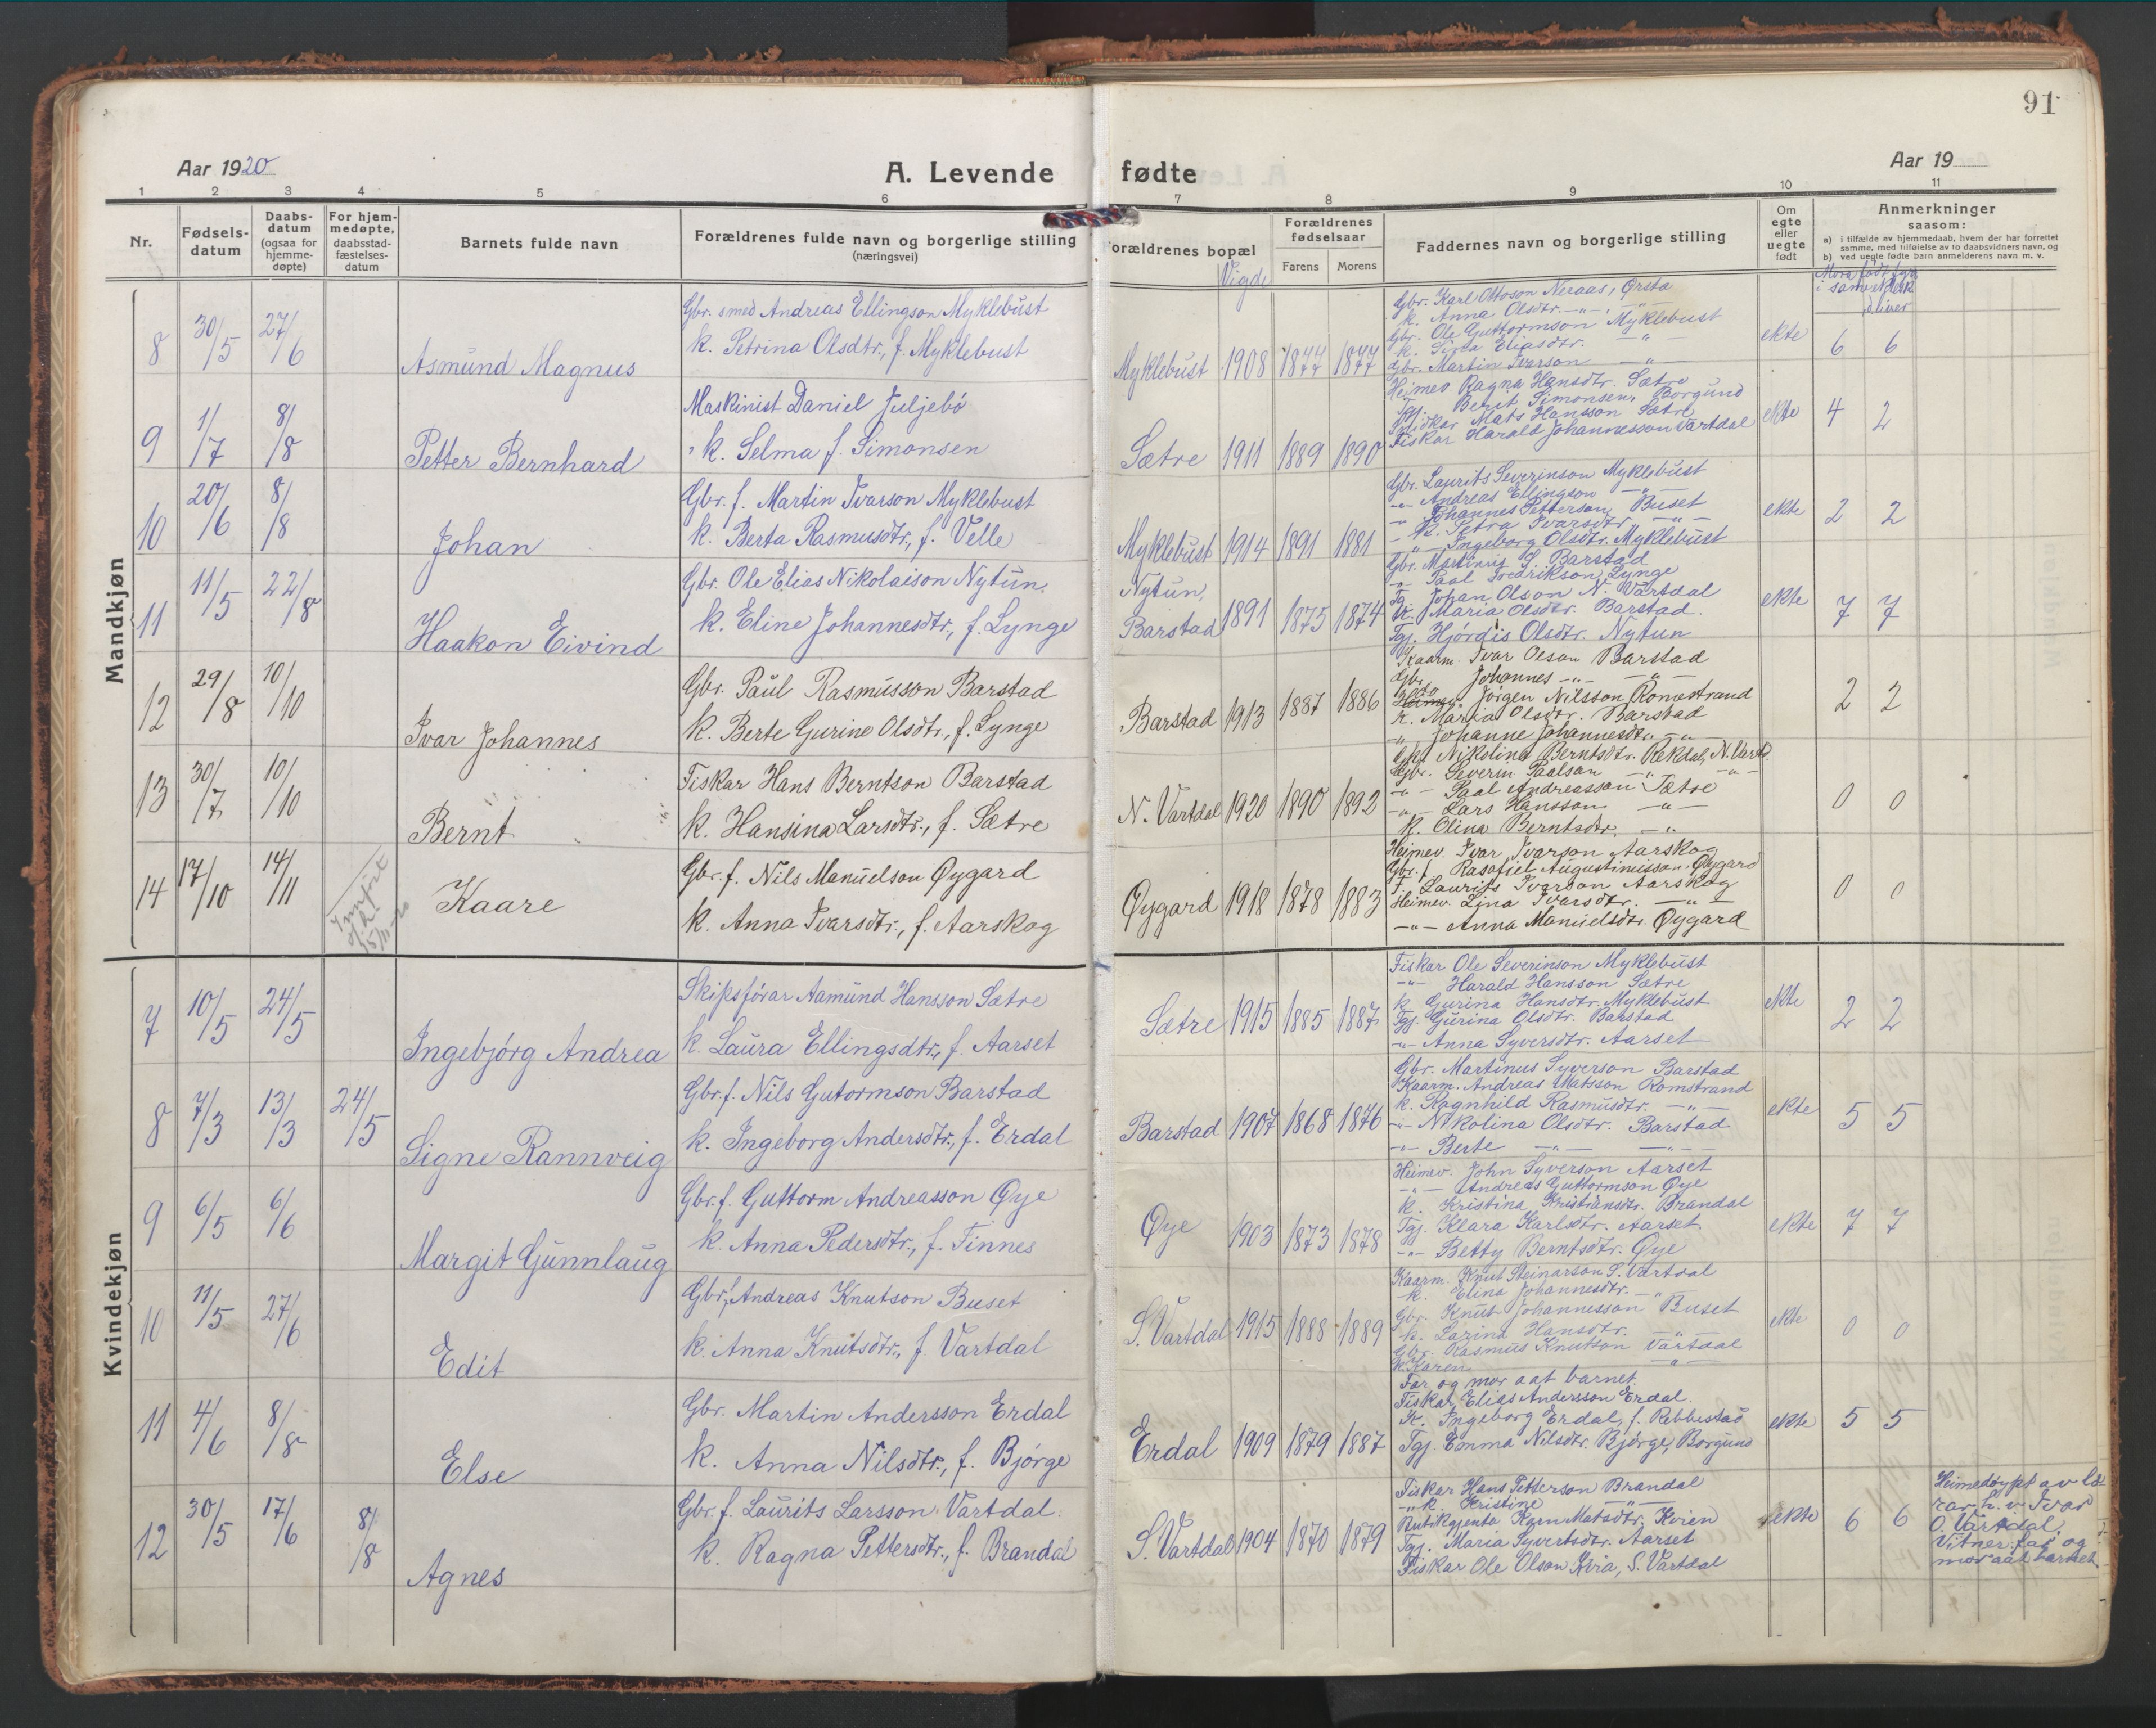 91
Aar 1920
A. Levende
fødte
Aar 19
1 2 3 4 5 6 7 8 9 10 11
Nr.
Fødsels-datum
Daabs-datum (ogsaa for hjemme-døpte)
For hjem-medøpte, daabsstad-fæstelses-datum
Barnets fulde navn
Forældrenes fulde navn og borgerlige stilling
(næringsvei)
orældrenes bopæl
Vigde
Forældrenes fødselsaar
Farens Morens
Faddernes navn og borgerlige stilling
Om egte eller uegte født
Anmerkninger
saasom:
a) i tilfælde av hjemmedaab, hvem der har forrettet samme, med tilføielse av to daabsvidners navn, og
b) ved uegte fødte barn anmelderens navn m. v.
Mandkjøn
8 30/5 27/6 Asmund Magnus
Gbr. smed Andreas Ellingson Myklebust
k. Petrina Olsdtr., f. Myklebust
Myklebust 1908 1877 1877
Gbr. Karl Ottoson Neraas, Ørsta
k. Anna Olsdtr. -"-
Gbr. Ole Guttormson Myklebust
k. Sina Eliasdtr. -"-
Gbr. Martin Ivarson -"-
ekte 6 6
9 1/7 8/8 Petter Bernhard
Maskinist Daniel Juljebö
k. Selma f. Simonsen
Sætre 1911 1889 1890
Heimev Ragna Hansdtr. Sætre
Tgj. Berit Simonsen, Borgund
Mats Hansson Sætre
Fiskar Harald Johannesson Vartdal
ekte 4 2
10 20/6 8/8 Johan
Gbr. f. Martin Ivarson Myklebust
k. Berta Rasmusdtr., f. Velle
Myklebust 1914 1891 1881
Gbr. Laurits Severinson Myklebust
-"- Andreas Ellingson -"-
-"- Johannes Petterson Buset
k. Petra Ivarsdtr -"-
-"- Ingeborg Olsdtr. Myklebust
ekte 2 2
11 11/5 22/8 Haakon Eivind
Gbr. Ole Elias Nikolaison Nytun.
k. Eline Johannesdtr., f. Lynge
Nytun, Barstad 1891 1875 1874
Gbr. Martinus S. Barstad
-"- Paal Fredrikson Lynge
Tg. Johan Olson N. Vartdal
k. Maria Olsdtr. Barstad.
Tgj. Hjørdis Olsdtr. Nytun
ekte 7 7
12 29/8 10/10 Ivar Johannes
Gbr. Paul Rasmusson Barstad
k. Berte Gurine Olsdtr., f. Lynge
Barstad 1913 1887 1886
Kaarm. Ivar Olson Barstad
Gbr. Johannes -"- -"-
Jørgen Nilsson Romestrand
k. Maria Olsdtr. Barstad
-"- Johanne Johannesdtr. -"-
2 2
13 30/7 10/10 Bernt
Fiskar Hans Berntson Barstad
k. Hansina Larsdtr., f. Sætre
N. Vartdal 1920 1890 1892
Nikolina Berntsdtr. Rekdal, N. Vartd.
Gbr. Severin Paalson -"- -"-
-"- Paal Andreasson Sætre
-"- Lars Hansson -"-
k. Olina Berntsdtr. -"-
0 0
14 17/10 14/11 Kaare
Innført
15/11-20
Gbr. f. Nils Manuelson Øygard
k. Anna Ivarsdtr., f. Aarskog
Øygard 1918 1878 1883
Heimev. Ivar Ivarson Aarskog
Gbr. f. Rasafiel Augustinusson Øygard
F. Laurits Ivarson Aarskog
Heimev. Lina Ivarsdtr. -"-
-"- Anna Manuelsdtr. Øygard
0 0
Kvindekjøn
7 10/5 24/5 Ingebjörg Andrea
Skipsförar Aamund Hansson Sætre
k. Laura Ellingsdtr., f. Aarset
Sætre 1915 1885 1887
Fiskar Ole Severinson Myklebust
-"- Harald Hansson Sætre
k. Gurina Hansdtr. Myklebust
Tgj. Gurina Olsdtr. Barstad
-"- Anna Syversdtr. Aarset
ekte 2 2
8 7/3 13/3 24/5 Signe Rannveig
Gbr. f. Nils Gutormson Barstad
k. Ingeborg Andersdtr., f. Erdal
Barstad 1907 1868 1876
Gbr. Martinus Syverson Barstad
Kaarm. Andreas Matsson Romstrand
k. Ragnhild Rasmusdtr. -"-
-"- Nikolina Olsdtr. Barstad
-"- Berte -"- -"-
ekte 5 5
9 6/5 6/6 Margit Gunnlaug
Gbr. f. Guttorm Andreasson Øye
k. Anna Pedersdtr., f. Finnes
Øye 1903 1873 1878
Heimev. John Syverson Aarset
-"- Andreas Guttormson Øye
k. Kristina Kristiansdtr. Brandal
Tgj. Klara Karlsdtr. Aarset.
-"- Betty Berntsdtr. Øye
ekte 7 7
10 11/5 27/6 Edit
Gbr. f. Andreas Knutson Buset
k. Anna Knutsdtr., f. Vartdal
S. Vartdal 1915 1888 1889
Kaarm. Knut Steinarson S. Vartdal
k. Elina Johannesdtr. -"-
Gbr. Knut Johannesson Buset
k. Larina Hansdtr. -"-
Gbr. Rasmus Knutson Vartdal
k. Karen -"-
ekte 0 0
11 4/6 8/8 Else
Gbr. Martin Andersson Erdal
k. Anna Nilsdtr., f. Bjørge
Erdal 1909 1879 1887
Far og mor aat barnet.
Fiskar Elias Andersson Erdal.
k. Ingeborg Erdal, f. Ribbestad
Tgj. Emma Nilsdtr. Bjørge, Borgund
ekte 5 5
12 30/5 17/6 8/8 Agnes
Gbr. f. Laurits Larsson Vartdal.
k. Ragna Pettersdtr., f. Brandal
S. Vartdal 1904 1870 1879
Fiskar Hans Petterson Brandal
-"- k. Kristine -"-
Butikgjenta Karn Matsdtr. Kvien
Tgj. Maria Syvertsdtr. Aarset
Fiskar Ole Olson Kvia, S. Vartdal
ekte 6 6
Heimedøypt av læ-
rar h. v. Ivar
O. Vartdal.
Vitner: far og
mor aat barnet.